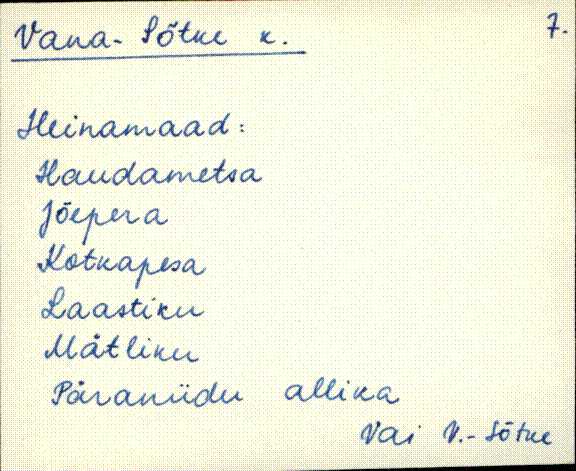 Vana-Sõtke k.
7.
Heinamaad:
Haudametsa
Jõepera
Kotkapesa
Laastiku
Måtliku
Päraniidu allika
Vai V.-Sõtke